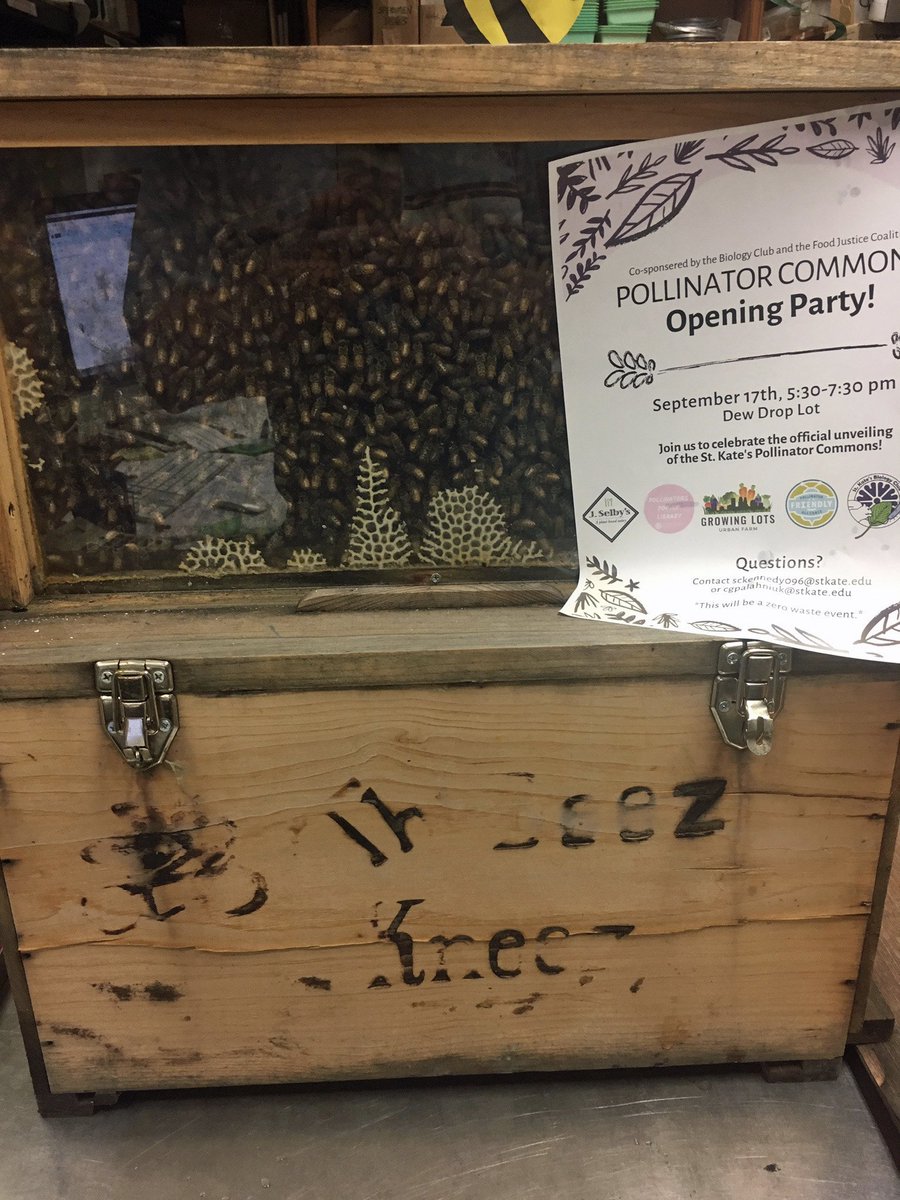 SPECIMEN
Co-sponsored by the Biology Club and the Food Justice Coalit
POLLINATOR COMMON
Opening Party!
September 17th, 5:30-7:30 pm
Dew Drop Lot
Join us to celebrate the official unveiling
of the St. Kate's Pollinator Commons!
J. Selby's
POLLINATORS
LIBRARY
GROWING LOTS
URBAN FARM
POLLINATOR
FRIENDLY
ALLIANCE
St. Kate's Biology Club
Questions?
Contact sckennedy096@stkate.edu
or cgpalahniuk@stkate.edu
"This will be a zero waste event."
eez
Knee